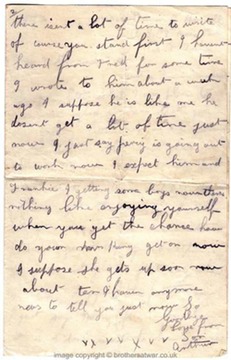 2
there isent a lot of time to write
of course you stand first I havent
heard from Fred for some time
I wrote to him about a week
ago I suppose he is like me he
dosent get a lot of time just
now I just say is going out
to work now I expect him and
Frankie I getting some boys now there
nothing like enjoying yourself
when you get the chance how
do get on now
I suppose she gets up soon now
about ten I havent anymore
news to tell you just now So
Love from
x x v x x
image copyright © brothersatwar.co.uk